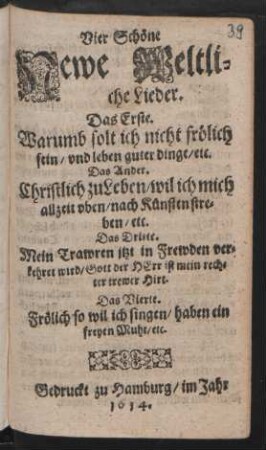 39
Vier Schöne
Newe Weltli-
che Lieder.
Das Erste.
Warumb solt ich nicht frölich
sein / vnd leben guter dinge / etc.
Das Ander.
Christlich zu Leben / wil ich mich
allzeit vben / nach Künsten stre-
ben / etc.
Das Dritte.
Mein Trawren itzt in Frewden ver-
kehret wird / Gott der HErr ist mein rech-
ter trewer Hirt.
Das Vierte.
Frölich so wil ich singen / haben ein
freyen Muht / etc.
Gedruckt zu Hamburg / im Jahr
1614.